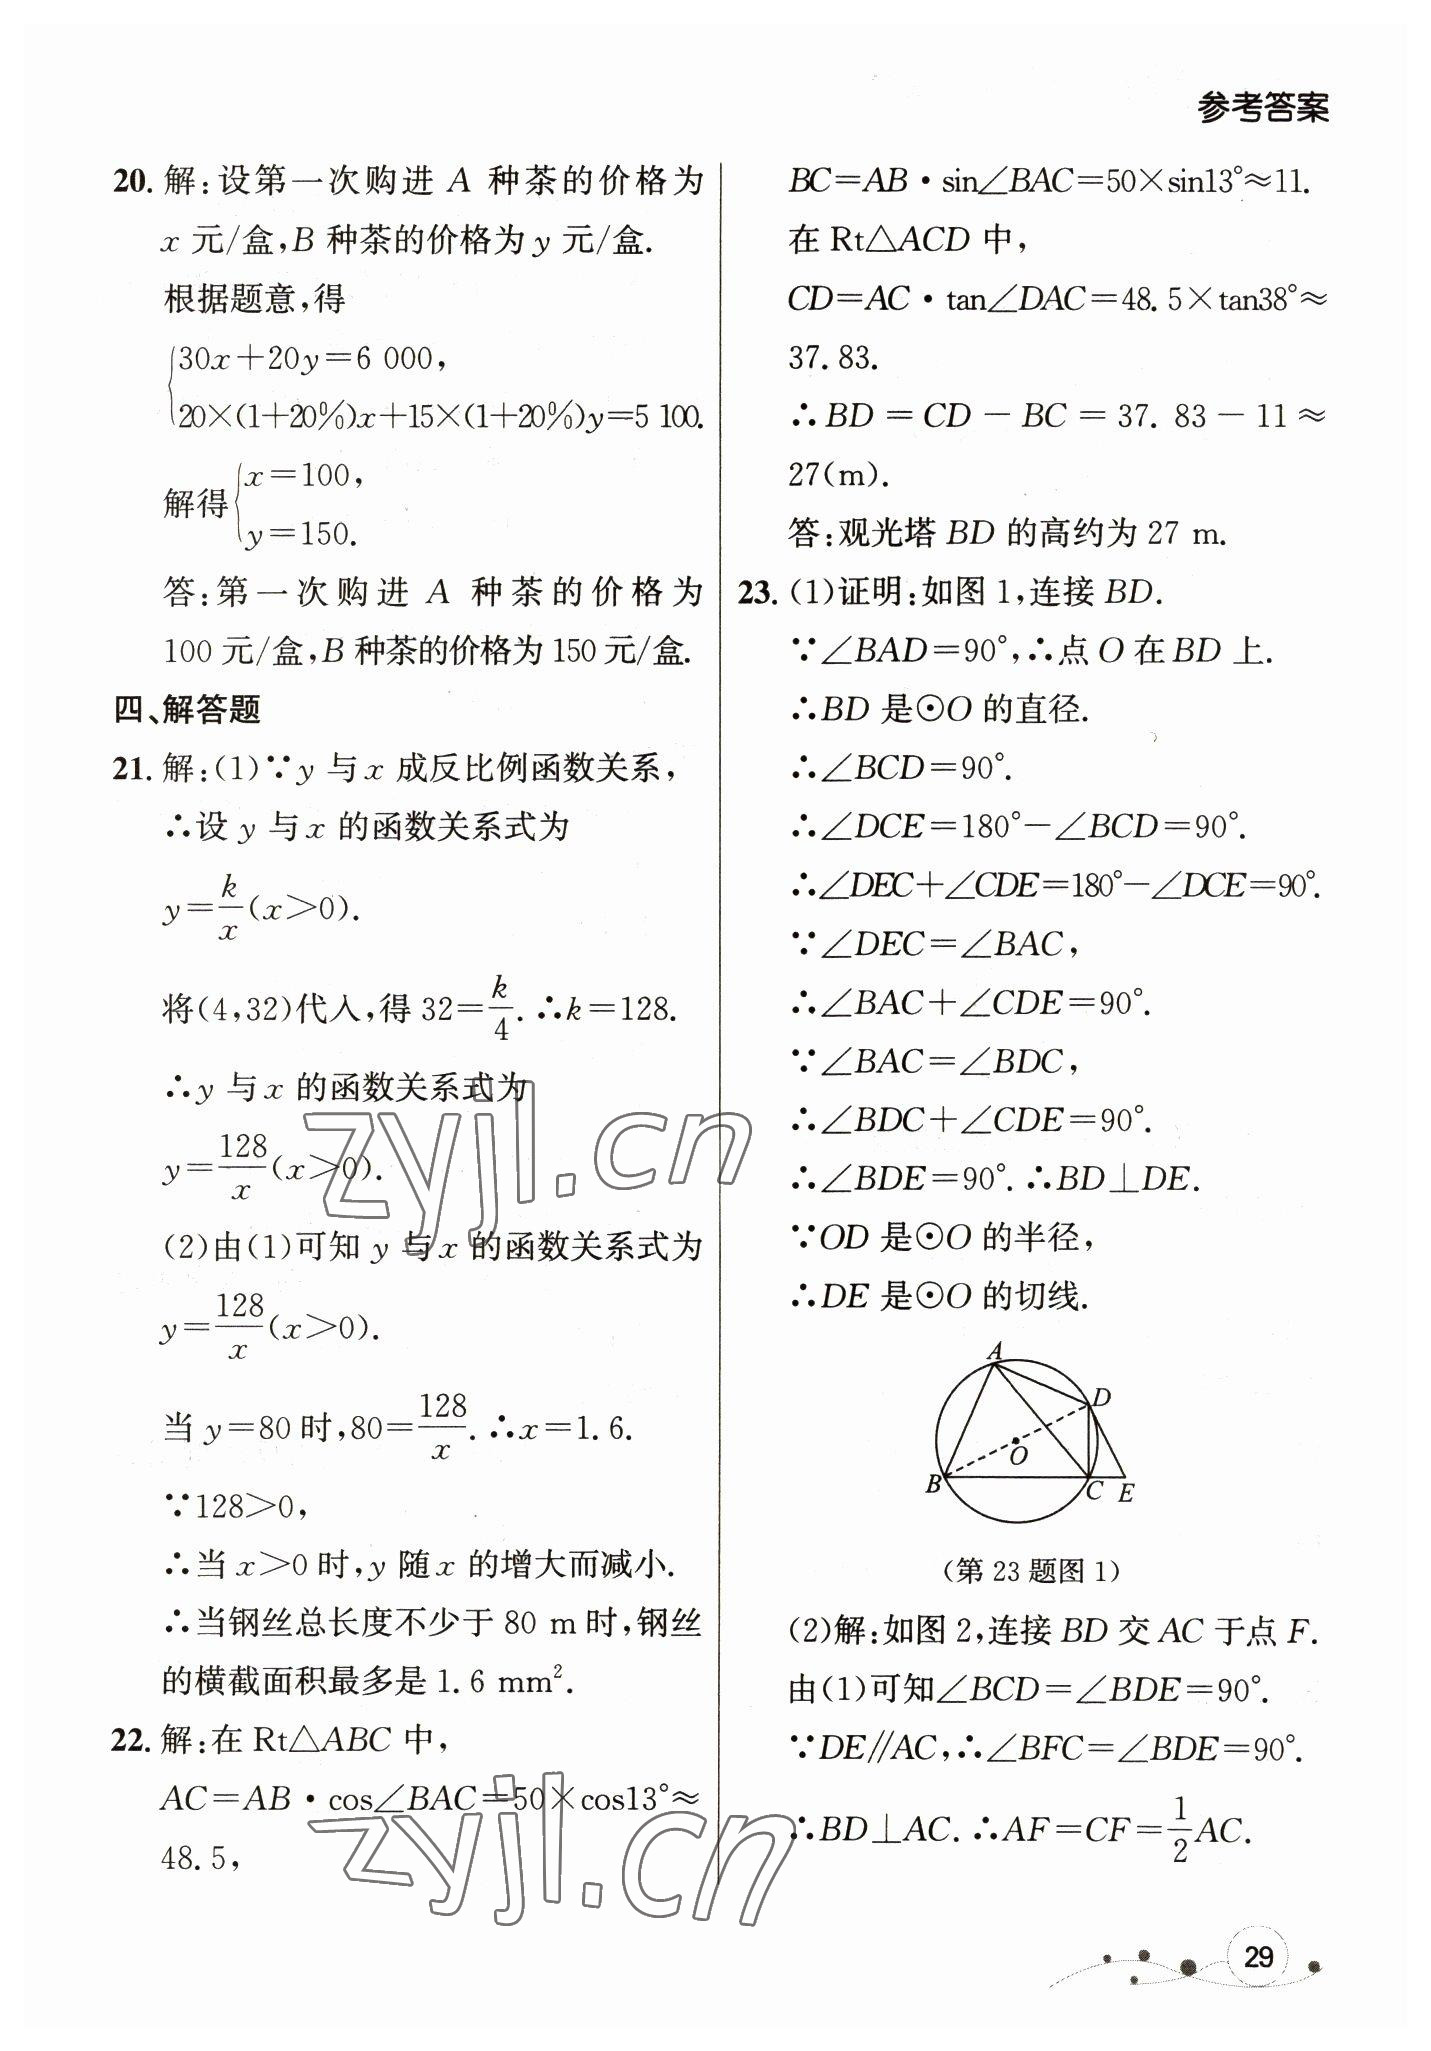 参考答案
20. 解:设第一次购进 A 种茶的价格为
x 元/盒,B 种茶的价格为 y 元/盒.
根据题意,得
{30x+20y=6 000,
20×(1+20%)x+15×(1+20%)y=5 100.
解得{x=100,
y=150.
答:第一次购进 A 种茶的价格为
100 元/盒,B 种茶的价格为 150 元/盒.
四、解答题
21. 解:(1)∵y 与 x 成反比例函数关系,
∴设 y 与 x 的函数关系式为
y=k/x(x>0).
将(4,32)代入,得 32=k/4. ∴k=128.
∴y 与 x 的函数关系式为
y=128/x(x>0).
(2)由(1)可知 y 与 x 的函数关系式为
y=128/x(x>0).
当 y=80 时,80=128/x. ∴x=1.6.
∵128>0,
∴当 x>0 时,y 随 x 的增大而减小.
∴当钢丝总长度不少于 80 m 时,钢丝
的横截面积最多是 1.6 mm².
22. 解:在 Rt△ABC 中,
AC=AB·cos∠BAC=50×cos13°≈
48.5,
BC=AB·sin∠BAC=50×sin13°≈11.
在 Rt△ACD 中,
CD=AC·tan∠DAC=48.5×tan38°≈
37.83.
∴BD=CD-BC=37.83-11≈
27(m).
答:观光塔 BD 的高约为 27 m.
23. (1)证明:如图 1,连接 BD.
∵∠BAD=90°,∴点 O 在 BD 上.
∴BD 是⊙O 的直径.
∴∠BCD=90°.
∴∠DCE=180°-∠BCD=90°.
∴∠DEC+∠CDE=180°-∠DCE=90°.
∵∠DEC=∠BAC,
∴∠BAC+∠CDE=90°.
∵∠BAC=∠BDC,
∴∠BDC+∠CDE=90°.
∴∠BDE=90°. ∴BD⊥DE.
∵OD 是⊙O 的半径,
∴DE 是⊙O 的切线.
A
D
O
B
C
E
(第 23 题图 1)
(2)解:如图 2,连接 BD 交 AC 于点 F.
由(1)可知∠BCD=∠BDE=90°.
∵DE∥AC,∴∠BFC=∠BDE=90°.
∴BD⊥AC. ∴AF=CF=1/2AC.
29
zyjl.cn
zyjl.cn